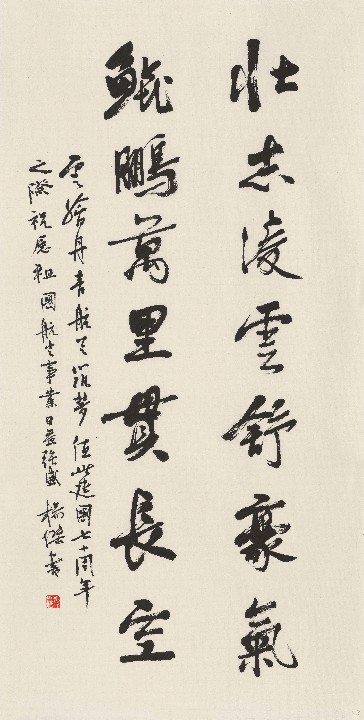 壯志凌雲舒豪氣
鯤鵬萬里貫長空
雲繪丹青航天筑夢值此建國七十周年
之際祝愿祖國航天事業日益强盛 楊傑書